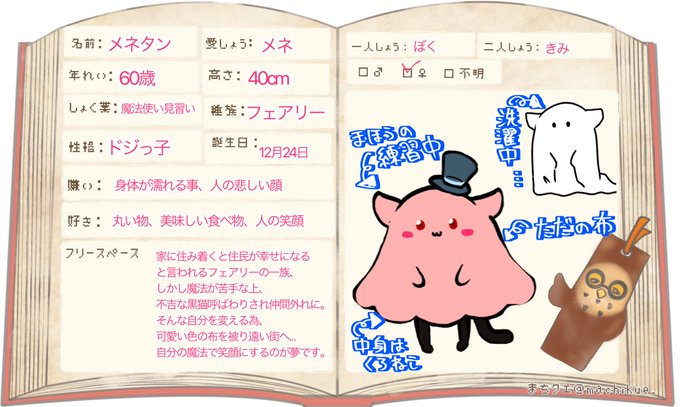 名前: メネタン
愛しょう: メネ
年れい: 60歳
高さ: 40cm
しょく業: 魔法使い見習い
種族: フェアリー
性格: ドジっ子
誕生日: 12月24日
嫌い: 身体が濡れる事、人の悲しい顔
好き: 丸い物、美味しい食べ物、人の笑顔
フリースペース
家に住み着くと住民が幸せになる
と言われるフェアリーの一族、
しかし魔法が苦手な上、
不吉な黒猫呼ばわりされ仲間外れに。
そんな自分を変える為、
可愛い色の布を被り遠い街へ...
自分の魔法で笑顔にするのが夢です。
一人しょう: ぼく
二人しょう: きみ
□♂ □♀ □不明
まほうの
練習中
洗濯中...
ただの布
中身は
くろねこ
まちクエ@machikue_